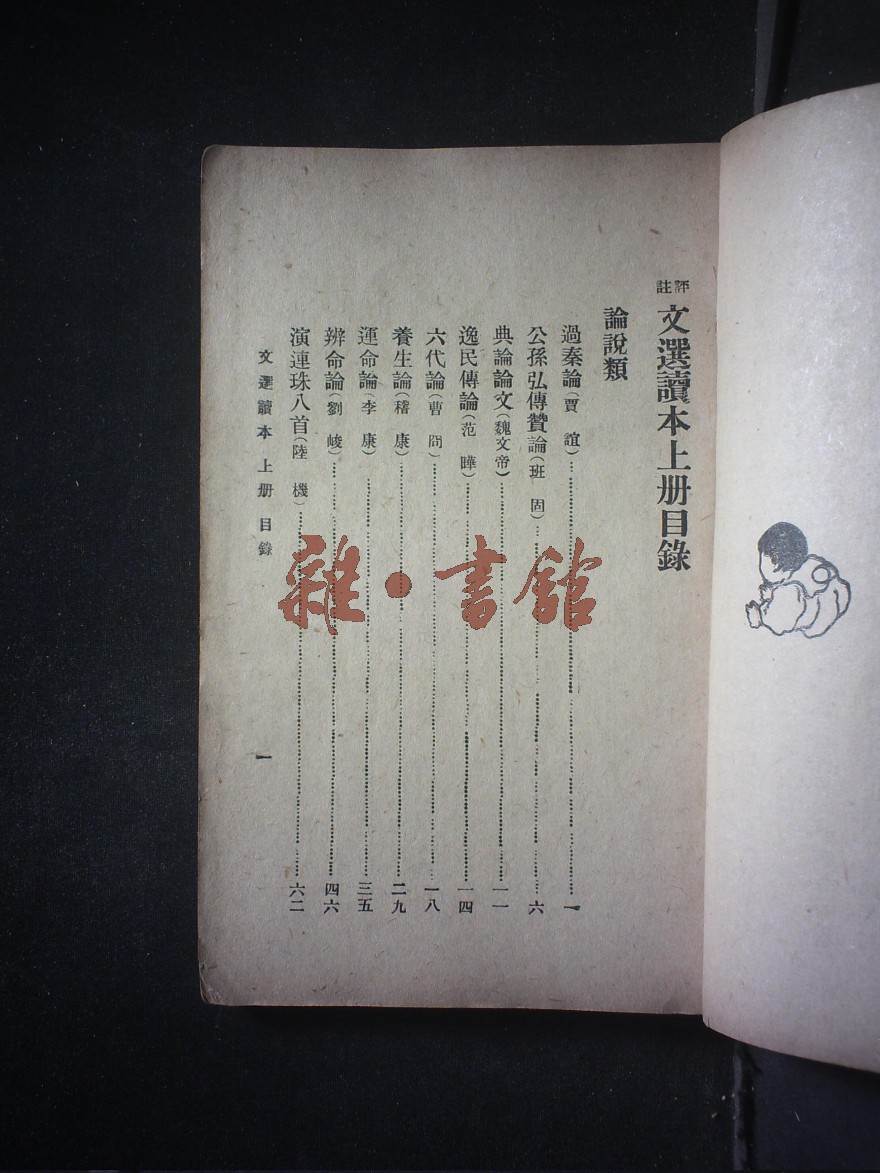 評註
文選讀本上册目錄
論說類
過秦論(賈誼)……一
公孫弘傳贊論(班固)……六
典論論文(魏文帝)……一一
逸民傳論(范曄)……一四
六代論(曹冏)……一八
養生論(稽康)……二九
運命論(李康)……三五
辨命論(劉峻)……四六
演連珠八首(陸機)……六二
文選讀本 上册 目錄
一
雜·書館